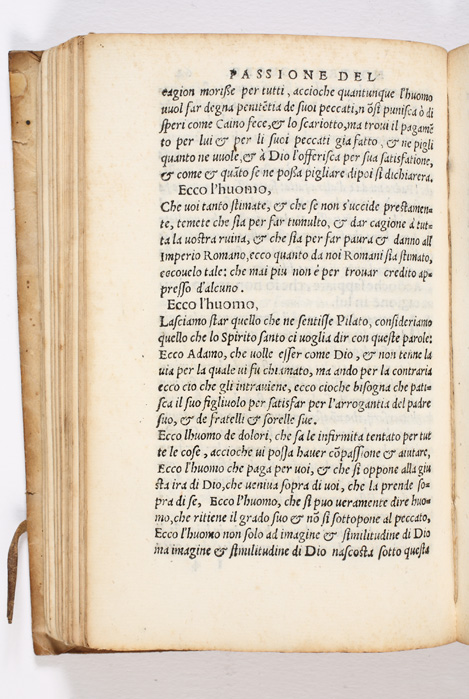 PASSIONE DEL
cagion morisse per tutti, accioche quantunque l'huomo
vuol far degna penitẽtia de suoi peccati, n õsi punisca ò di
speri come Caino fece, & lo scariotto, ma trovi il pagamẽ
to per lui & per li suoi peccati gia fatto, & ne pigli
quanto ne vuole, & à Dio l'offerisca per sua satisfatione,
& come & quãto se ne possa pigliare dipoi si dichiarera.
Ecco l'huomo,
Che voi tanto stimate, & che se non s'uccide prestamen-
te, temete che sia per far tumulto, & dar cagione à tut-
ta la vostra ruina, & che sia per far paura & danno all
Imperio Romano, ecco quanto da noi Romani sia stimato,
eccovelo tale: che mai piu non è per trovar credito ap-
presso d'alcuno.
Ecco l'huomo,
Lasciamo star quello che ne sentisse Pilato, consideriamo
quello che lo Spirito santo ci voglia dir con queste parole:
Ecco Adamo, che volle esser come Dio, & non tenne la
via per la quale vi fu chiamato, ma ando per la contraria
ecco cio che gli intraviene, ecco cioche bisogna che pati-
sca il suo figliuolo per satisfar per l'arrogantia del padre
suo, & de fratelli & sorelle sue.
Ecco lhuomo de dolori, che sa le infirmita tentato per tut
te le cose, accioche vi possa haver cõpassione & aiutare,
Ecco l'huomo che paga per voi, & che si oppone alla giu
sta ira di Dio, che veniva sopra di voi, che la prende so-
pra di se, Ecco l'huomo, che si puo veramente dire huo-
mo, che ritiene il grado suo & nõ si sottopone al peccato,
Ecco l'huomo non solo ad imagine & similitudine di Dio
ma imagine & similitudine di Dio nascosta sotto questa